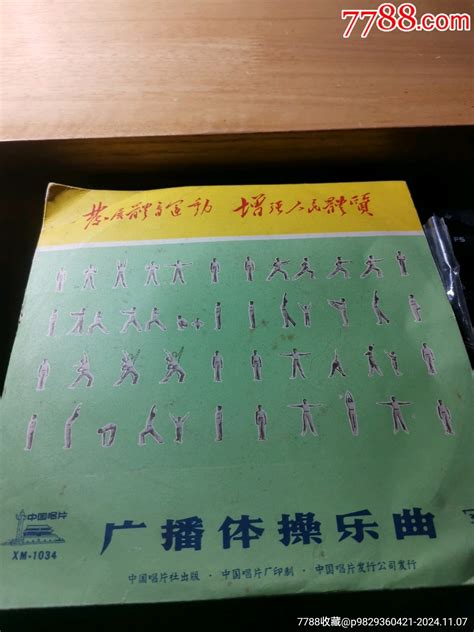 7788.com
发展體育运动 增强人民體質
中国唱片
XM-1034
广播体操乐曲
· 中国唱片社出版 · 中国唱片厂印制 · 中国唱片发行公司发行
7788收藏@p9829360421-2024.11.07